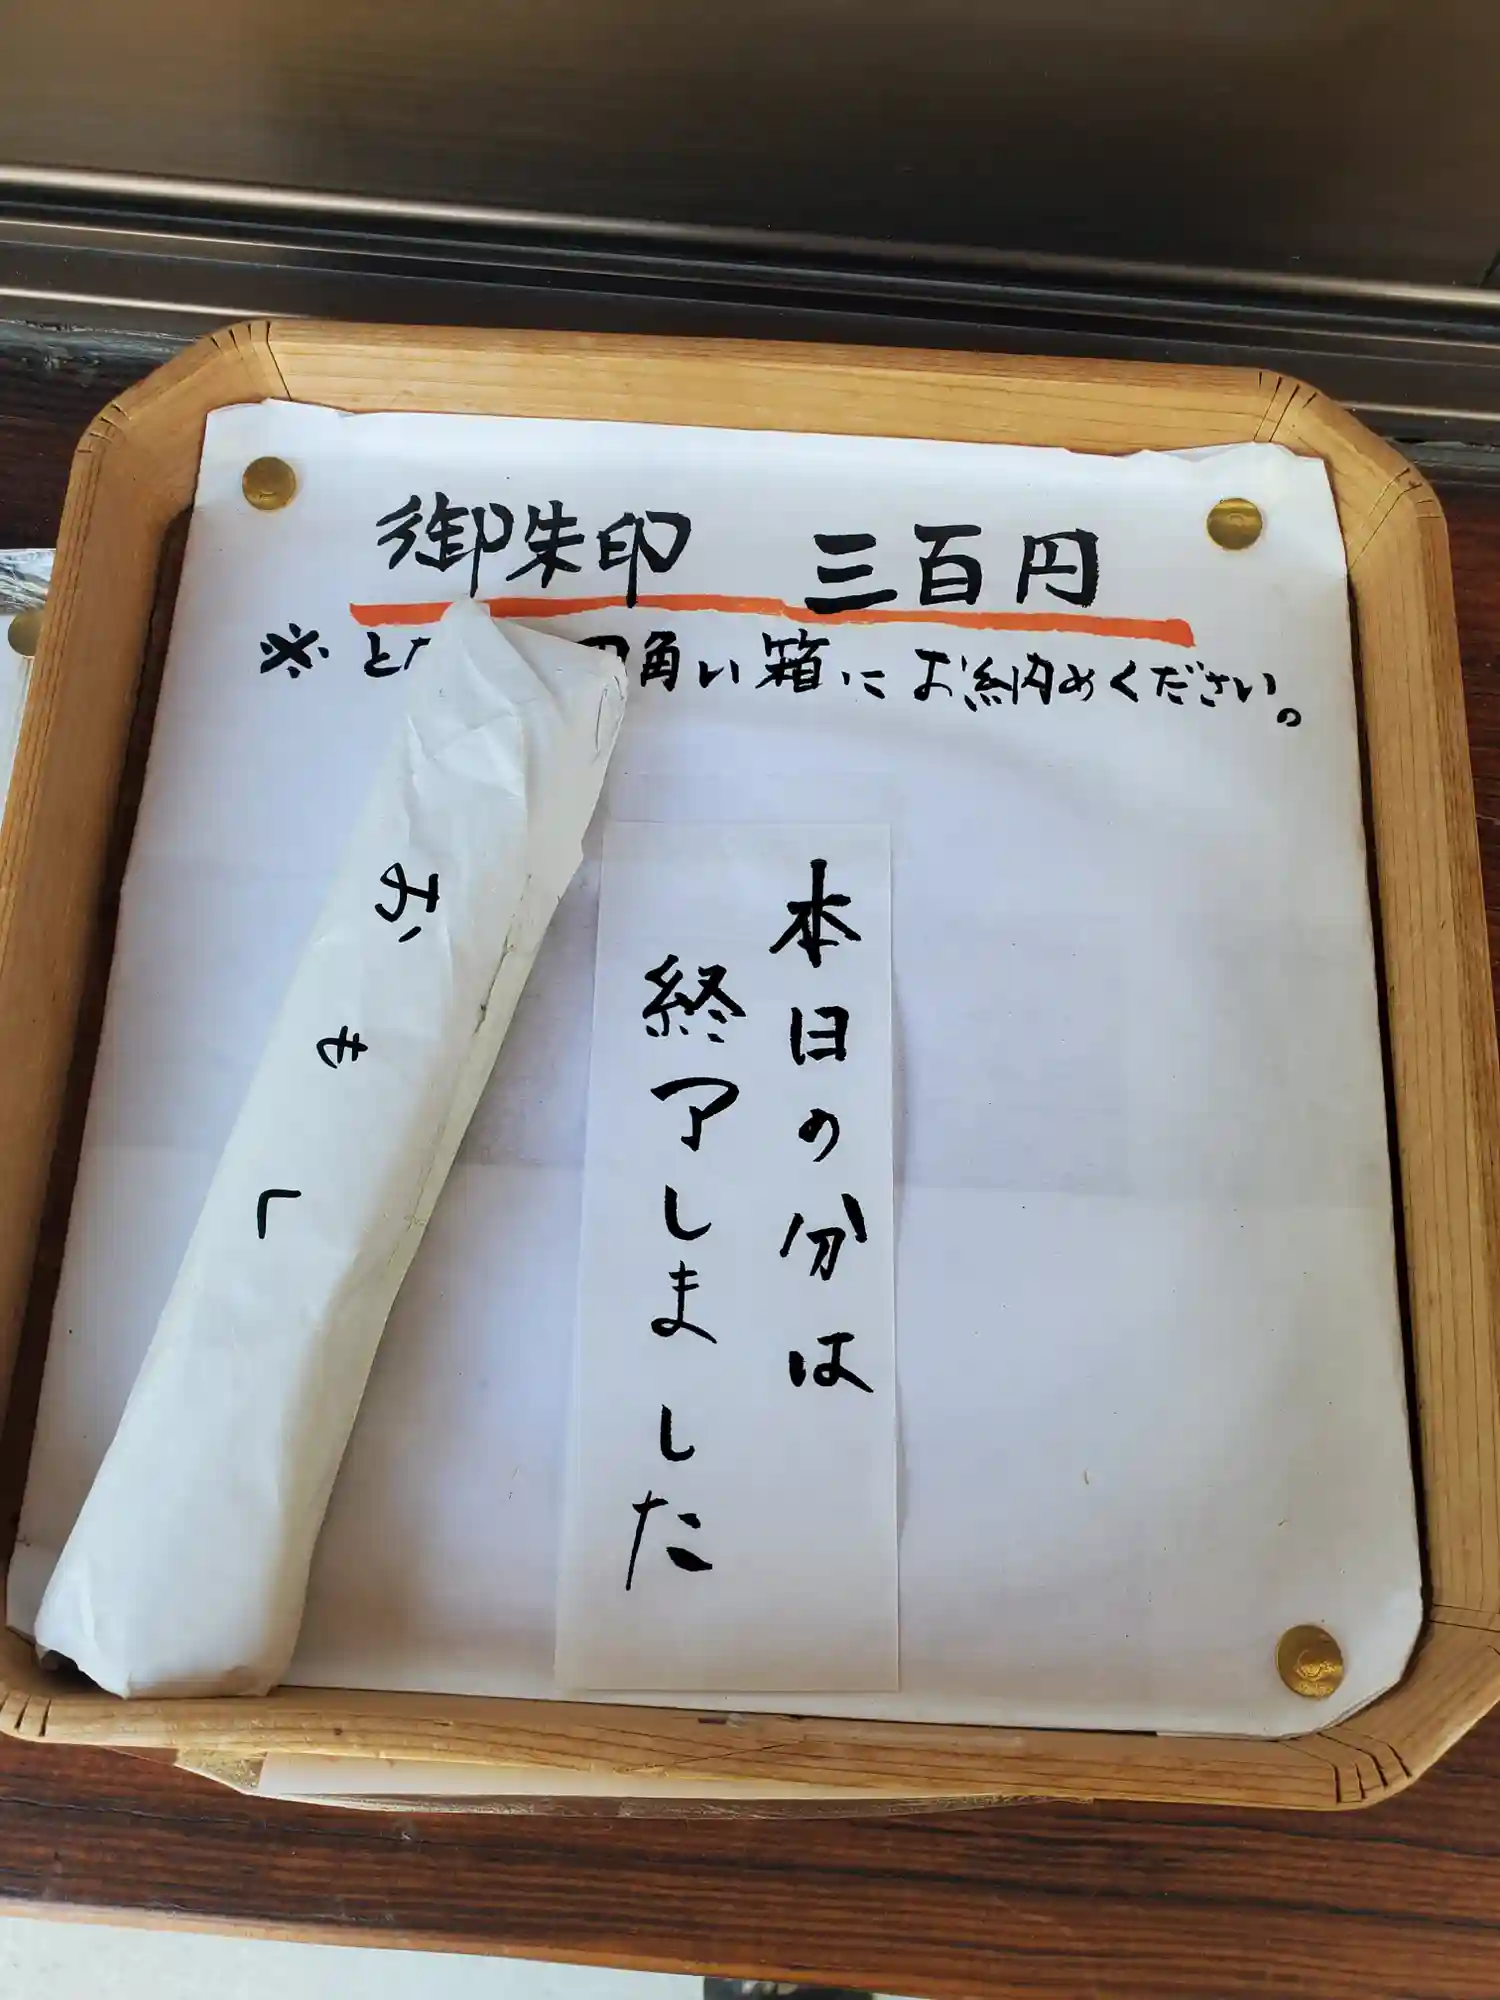 御朱印 三百円
※と 四角い箱にお納めください。
本日の分は
終了しました
おもし